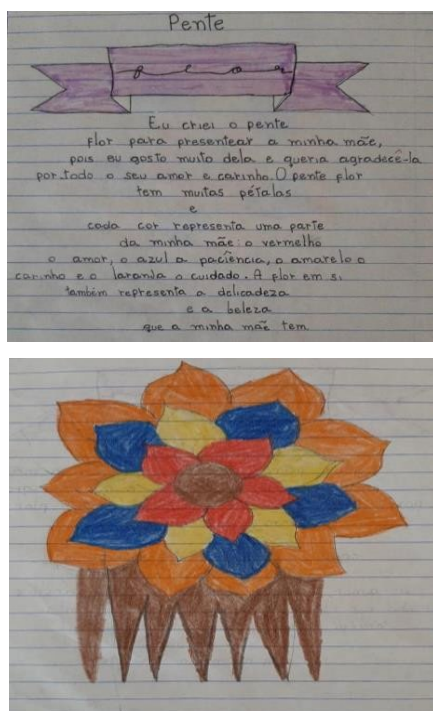 Pente
flor
Eu criei o pente
flor para presentear a minha mãe,
pois eu gosto muito dela e queria agradecê-la
por todo o seu amor e carinho. O pente flor
tem muitas pétalas
e
cada cor representa uma parte
da minha mãe: o vermelho
o amor, o azul a paciência, o amarelo o
carinho e o laranja o cuidado. A flor em si
também representa a delicadeza
e a beleza
que a minha mãe tem